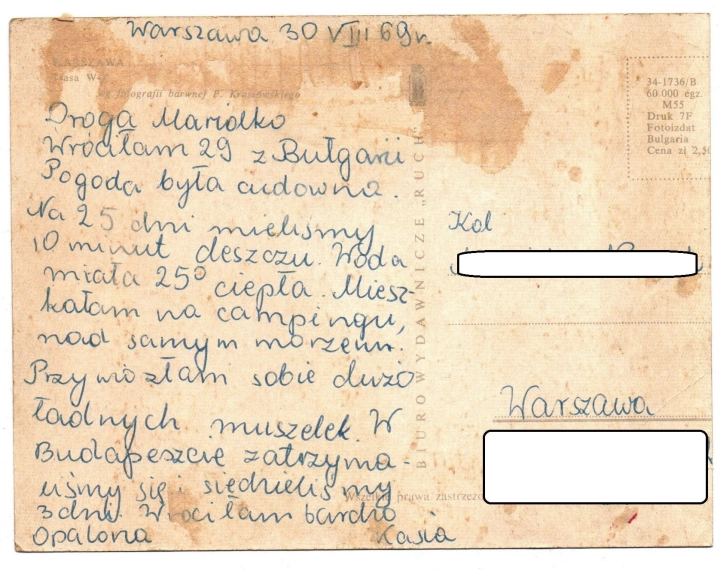 Warszawa 30 VIII 69r.
WARSZAWA
Trasa W-Z
wg fotografii barwnej P. Krassowskiego
Droga Mariolko
Wróciłam 29 z Bułgarii
Pogoda była cudowna.
Na 25 dni mieliśmy
10 minut deszczu. Woda
miała 25° ciepła. Miesz-
kałam na campingu,
nad samym morzem.
Przywiozłam sobie dużo
ładnych muszelek. W
Budapeszcie zatrzyma-
liśmy się i siedzieliśmy
3 dni. Wróciłam bardzo
opalona
Kasia
BIURO WYDAWNICZE „RUCH"
Wszelkie prawa zastrzeżo
34-1736/B
60.000 egz.
M55
Druk 7F
Fotoizdat
Bulgaria
Cena zł 2,50
Kol
Warszawa